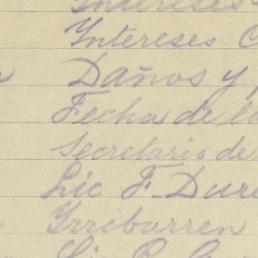 Intereses
Intereses C
Daños y
Fecha de l
Secretario de
Lic F. Dur
Yrribarren